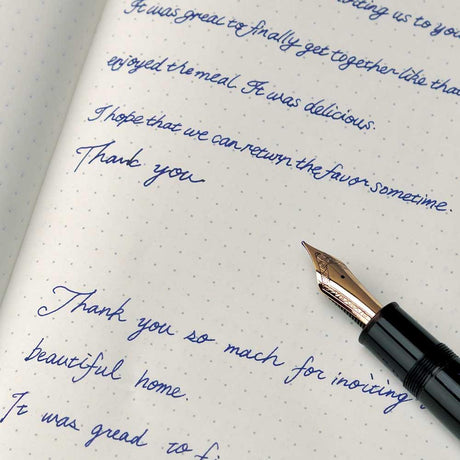 inviting us to you
It was great to finally get together like that
enjoyed the meal. It was delicious.
I hope that we can return the favor sometime.
Thank you
Thank you so mach for inoiting
beautiful home.
It was gread to fi